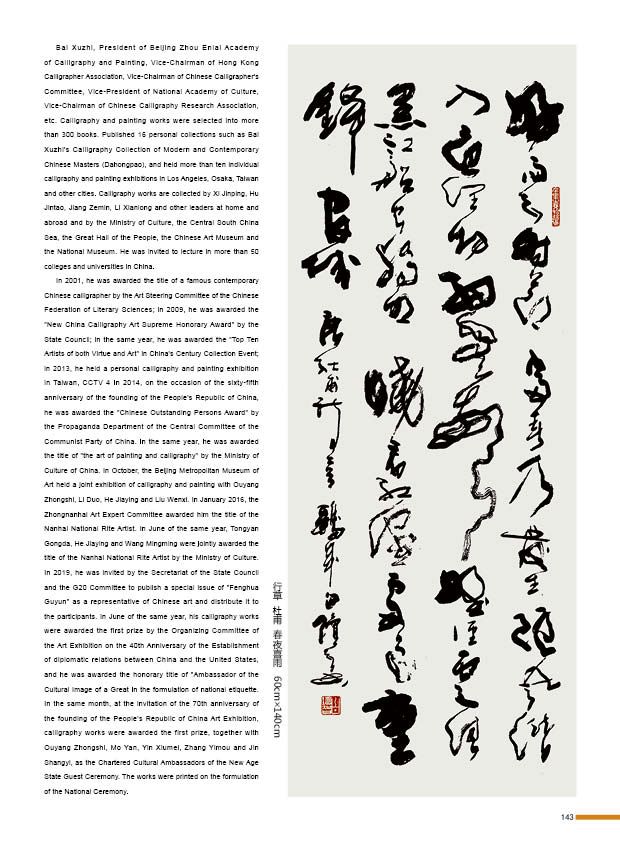 Bai Xuzhi, President of Beijing Zhou Enlai Academy
of Calligraphy and Painting, Vice-Chairman of Hong Kong
Calligrapher Association, Vice-Chairman of Chinese Calligrapher's
Committee, Vice-President of National Academy of Culture,
Vice-Chairman of Chinese Calligraphy Research Association,
etc. Calligraphy and painting works were selected into more
than 300 books. Published 16 personal collections such as Bai
Xuzhi's Calligraphy Collection of Modern and Contemporary
Chinese Masters (Dahongpao), and held more than ten individual
calligraphy and painting exhibitions in Los Angeles, Osaka, Taiwan
and other cities. Calligraphy works are collected by Xi Jinping, Hu
Jintao, Jiang Zemin, Li Xianlong and other leaders at home and
abroad and by the Ministry of Culture, the Central South China
Sea, the Great Hall of the People, the Chinese Art Museum and
the National Museum. He was invited to lecture in more than 50
colleges and universities in China.
In 2001, he was awarded the title of a famous contemporary
Chinese calligrapher by the Art Steering Committee of the Chinese
Federation of Literary Sciences; In 2009, he was awarded the
"New China Calligraphy Art Supreme Honorary Award" by the
State Council; In the same year, he was awarded the "Top Ten
Artists of both Virtue and Art" in China's Century Collection Event;
in 2013, he held a personal calligraphy and painting exhibition
in Taiwan, CCTV 4 In 2014, on the occasion of the sixty-fifth
anniversary of the founding of the People's Republic of China,
he was awarded the "Chinese Outstanding Persons Award" by
the Propaganda Department of the Central Committee of the
Communist Party of China. In the same year, he was awarded
the title of "the art of painting and calligraphy" by the Ministry of
Culture of China. In October, the Beijing Metropolitan Museum of
Art held a joint exhibition of calligraphy and painting with Ouyang
Zhongshi, Li Duo, He Jiaying and Liu Wenxi. In January 2016, the
Zhongnanhai Art Expert Committee awarded him the title of the
Nanhai National Rite Artist. In June of the same year, Tongyan
Gongda, He Jiaying and Wang Mingming were jointly awarded the
title of the Nanhai National Rite Artist by the Ministry of Culture.
In 2019, he was invited by the Secretariat of the State Council
and the G20 Committee to publish a special issue of "Fenghua
Guyun" as a representative of Chinese art and distribute it to
the participants. In June of the same year, his calligraphy works
were awarded the first prize by the Organizing Committee of
the Art Exhibition on the 40th Anniversary of the Establishment
of diplomatic relations between China and the United States,
and he was awarded the honorary title of "Ambassador of the
Cultural Image of a Great in the formulation of national etiquette.
In the same month, at the invitation of the 70th anniversary of
the founding of the People's Republic of China Art Exhibition,
calligraphy works were awarded the first prize, together with
Ouyang Zhongshi, Mo Yan, Yin Xiumei, Zhang Yimou and Jin
Shangyi, as the Chartered Cultural Ambassadors of the New Age
State Guest Ceremony. The works were printed on the formulation
of the National Ceremony.
行草 杜甫 春夜喜雨 60cm×140cm
好雨知時節當春乃發生隨風潛
入夜潤物細無聲野徑雲俱
黑江船火獨明曉看紅濕處花重
錦官城
143